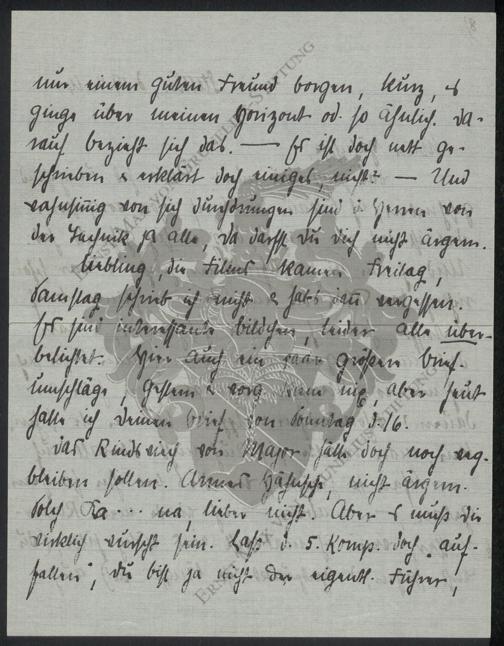 8
nur einem guten Freund borgen, kurz, es
ginge über meinen Horizont od. so ähnlich. Da-
rauf bezieht sich das. — Es ist doch nett ge-
schrieben & erklärt doch einiges, nicht? — Und
wahnsinnig von sich durchdrungen sind d. Herren von
der Technik ja alle, da darfst Du Dich nicht ärgern.
Liebling, die Films kamen Freitag,
Samstag schrieb ich nicht & hab's dann vergessen.
Es sind interessante Bildchen, leider alle über-
belichtet. Hier auch ein paar größere Brief-
umschläge, gestern & vorg. kam nix, aber heut
hatte ich Deinen Brief von Sonntag d. 16.
Das Rindvieh von Major hätte doch noch weg-
bleiben sollen. Armes Häschen, nicht ärgern.
Solch Ka... na, lieber nicht. Aber es muß Dir
wirklich wurscht sein. Laß d. 5. Komp. doch „auf-
fallen", Du bist ja nicht der eigentl. Führer,